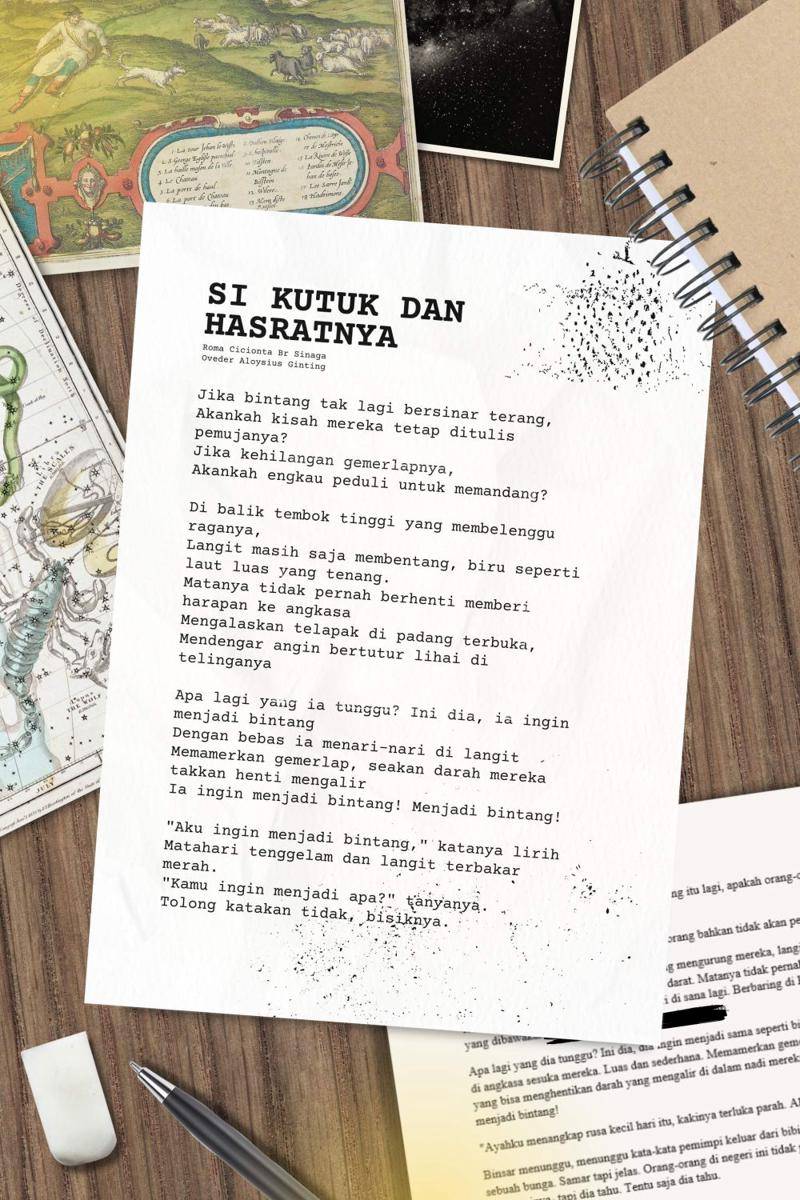 SI KUTUK DAN
HASRATNYA
Roma Cicionta Br Sinaga
Oveder Aloysius Ginting
Jika bintang tak lagi bersinar terang,
Akankah kisah mereka tetap ditulis
pemujanya?
Jika kehilangan gemerlapnya,
Akankah engkau peduli untuk memandang?
Di balik tembok tinggi yang membelenggu
raganya,
Langit masih saja membentang, biru seperti
laut luas yang tenang.
Matanya tidak pernah berhenti memberi
harapan ke angkasa
Mengalaskan telapak di padang terbuka,
Mendengar angin bertutur lihai di
telinganya
Apa lagi yang ia tunggu? Ini dia, ia ingin
menjadi bintang
Dengan bebas ia menari-nari di langit
Memamerkan gemerlap, seakan darah mereka
takkan henti mengalir
Ia ingin menjadi bintang! Menjadi bintang!
"Aku ingin menjadi bintang," katanya lirih
Matahari tenggelam dan langit terbakar
merah.
"Kamu ingin menjadi apa?" tanyanya.
Tolong katakan tidak, bisiknya.
ng itu lagi, apakah orang-o
orang bahkan tidak akan pe
g mengurung mereka, lang
darat. Matanya tidak pernah
i di sana lagi. Berbaring di
yang dibawa
Apa lagi yang dia tunggu? Ini dia, dia ingin menjadi sama seperti bi
di angkasa sesuka mereka. Luas dan sederhana. Memamerkan geme
yang bisa menghentikan darah yang mengalir di dalam nadi mereka
menjadi bintang!
"Ayahku menangkap rusa kecil hari itu, kakinya terluka parah.
Binsar menunggu, menunggu kata-kata pemimpi keluar dari bibi
sebuah bunga. Samar tapi jelas. Orang-orang di negeri ini tidak
tapi dia tahu. Tentu saja dia tahu.
4 Le Chasteau
THE SCALES
THE WOLF
JULY